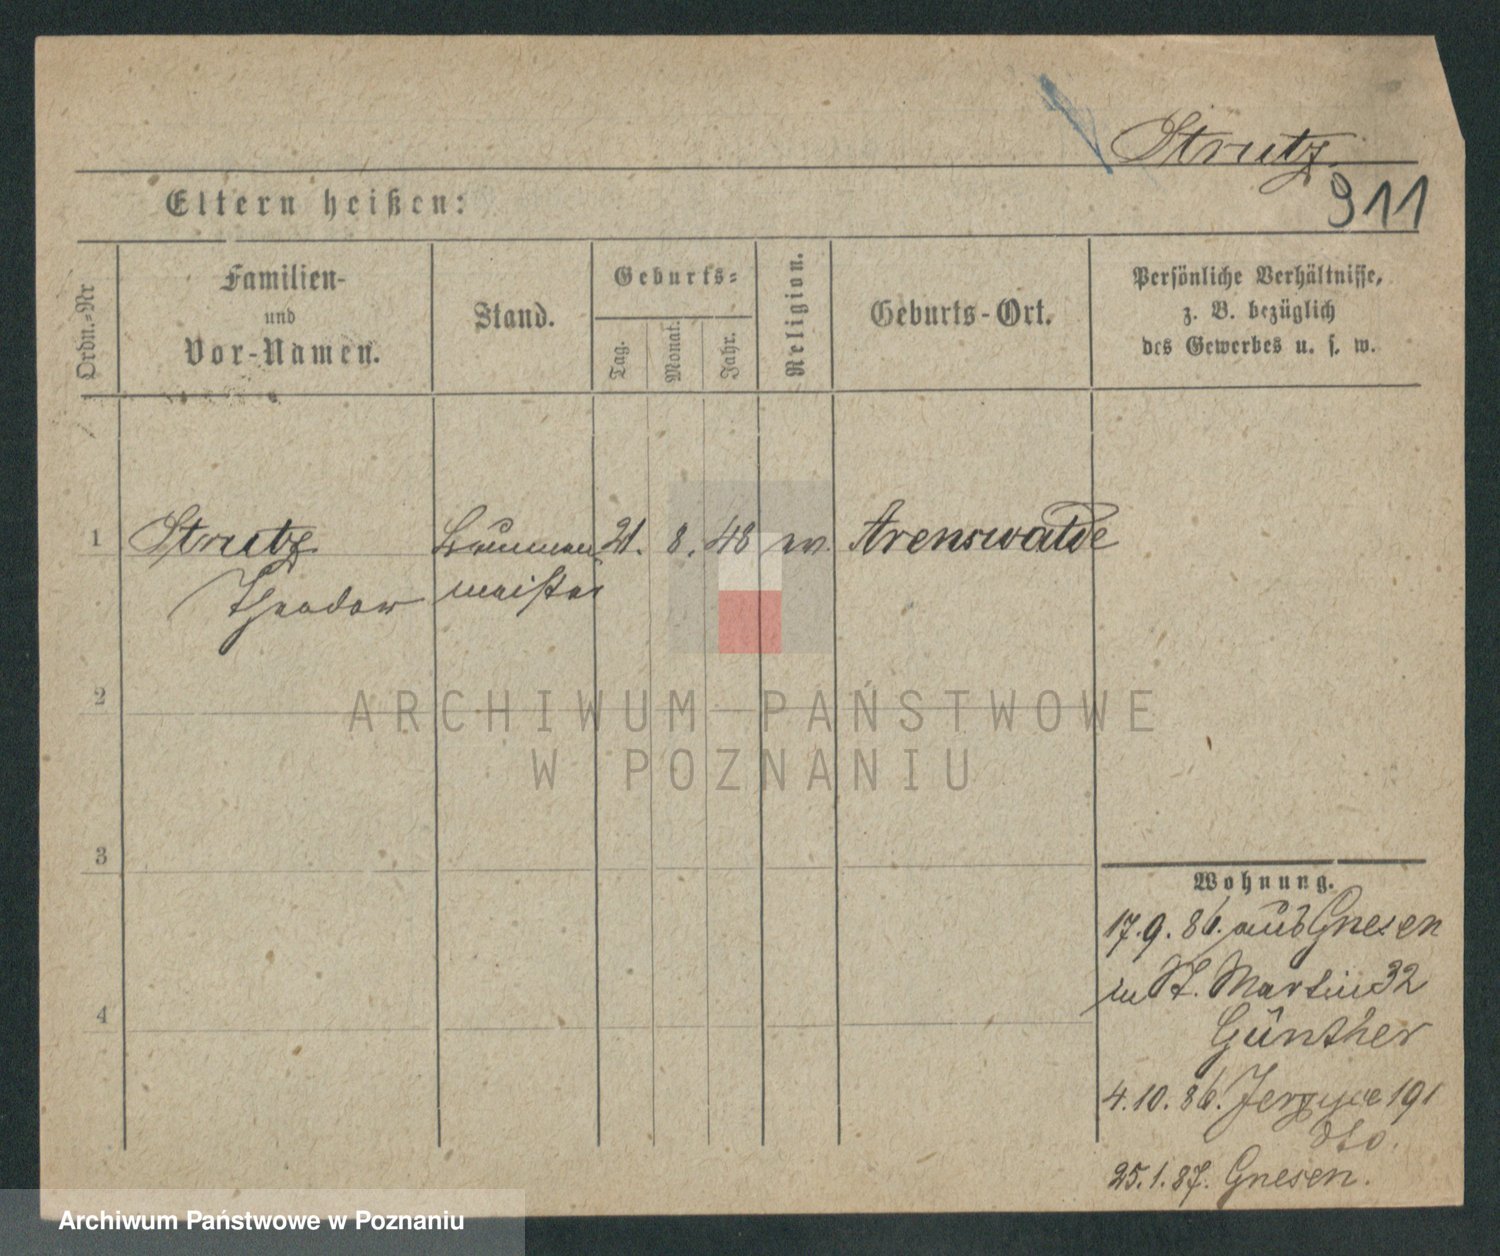 Strutz
911
Eltern heißen:
Ordn.-Nr
Familien-
und
Vor-Namen.
Stand.
Geburts-
Tag.
Monat.
Jahr.
Religion.
Geburts-Ort.
Persönliche Verhältnisse,
z. B. bezüglich
des Gewerbes u. s. w.
1
Strutz
Theodor
Brunnen
meister
21. 8. 48 ev. Arenswalde
2
3
4
Wohnung.
17.9.86. aus Gnesen
in St. Martin 32
Günther
4.10.86. Jerzyce 191
dto.
25.1.87. Gnesen.
ARCHIWUM PAŃSTWOWE
W POZNANIU
Archiwum Państwowe w Poznaniu